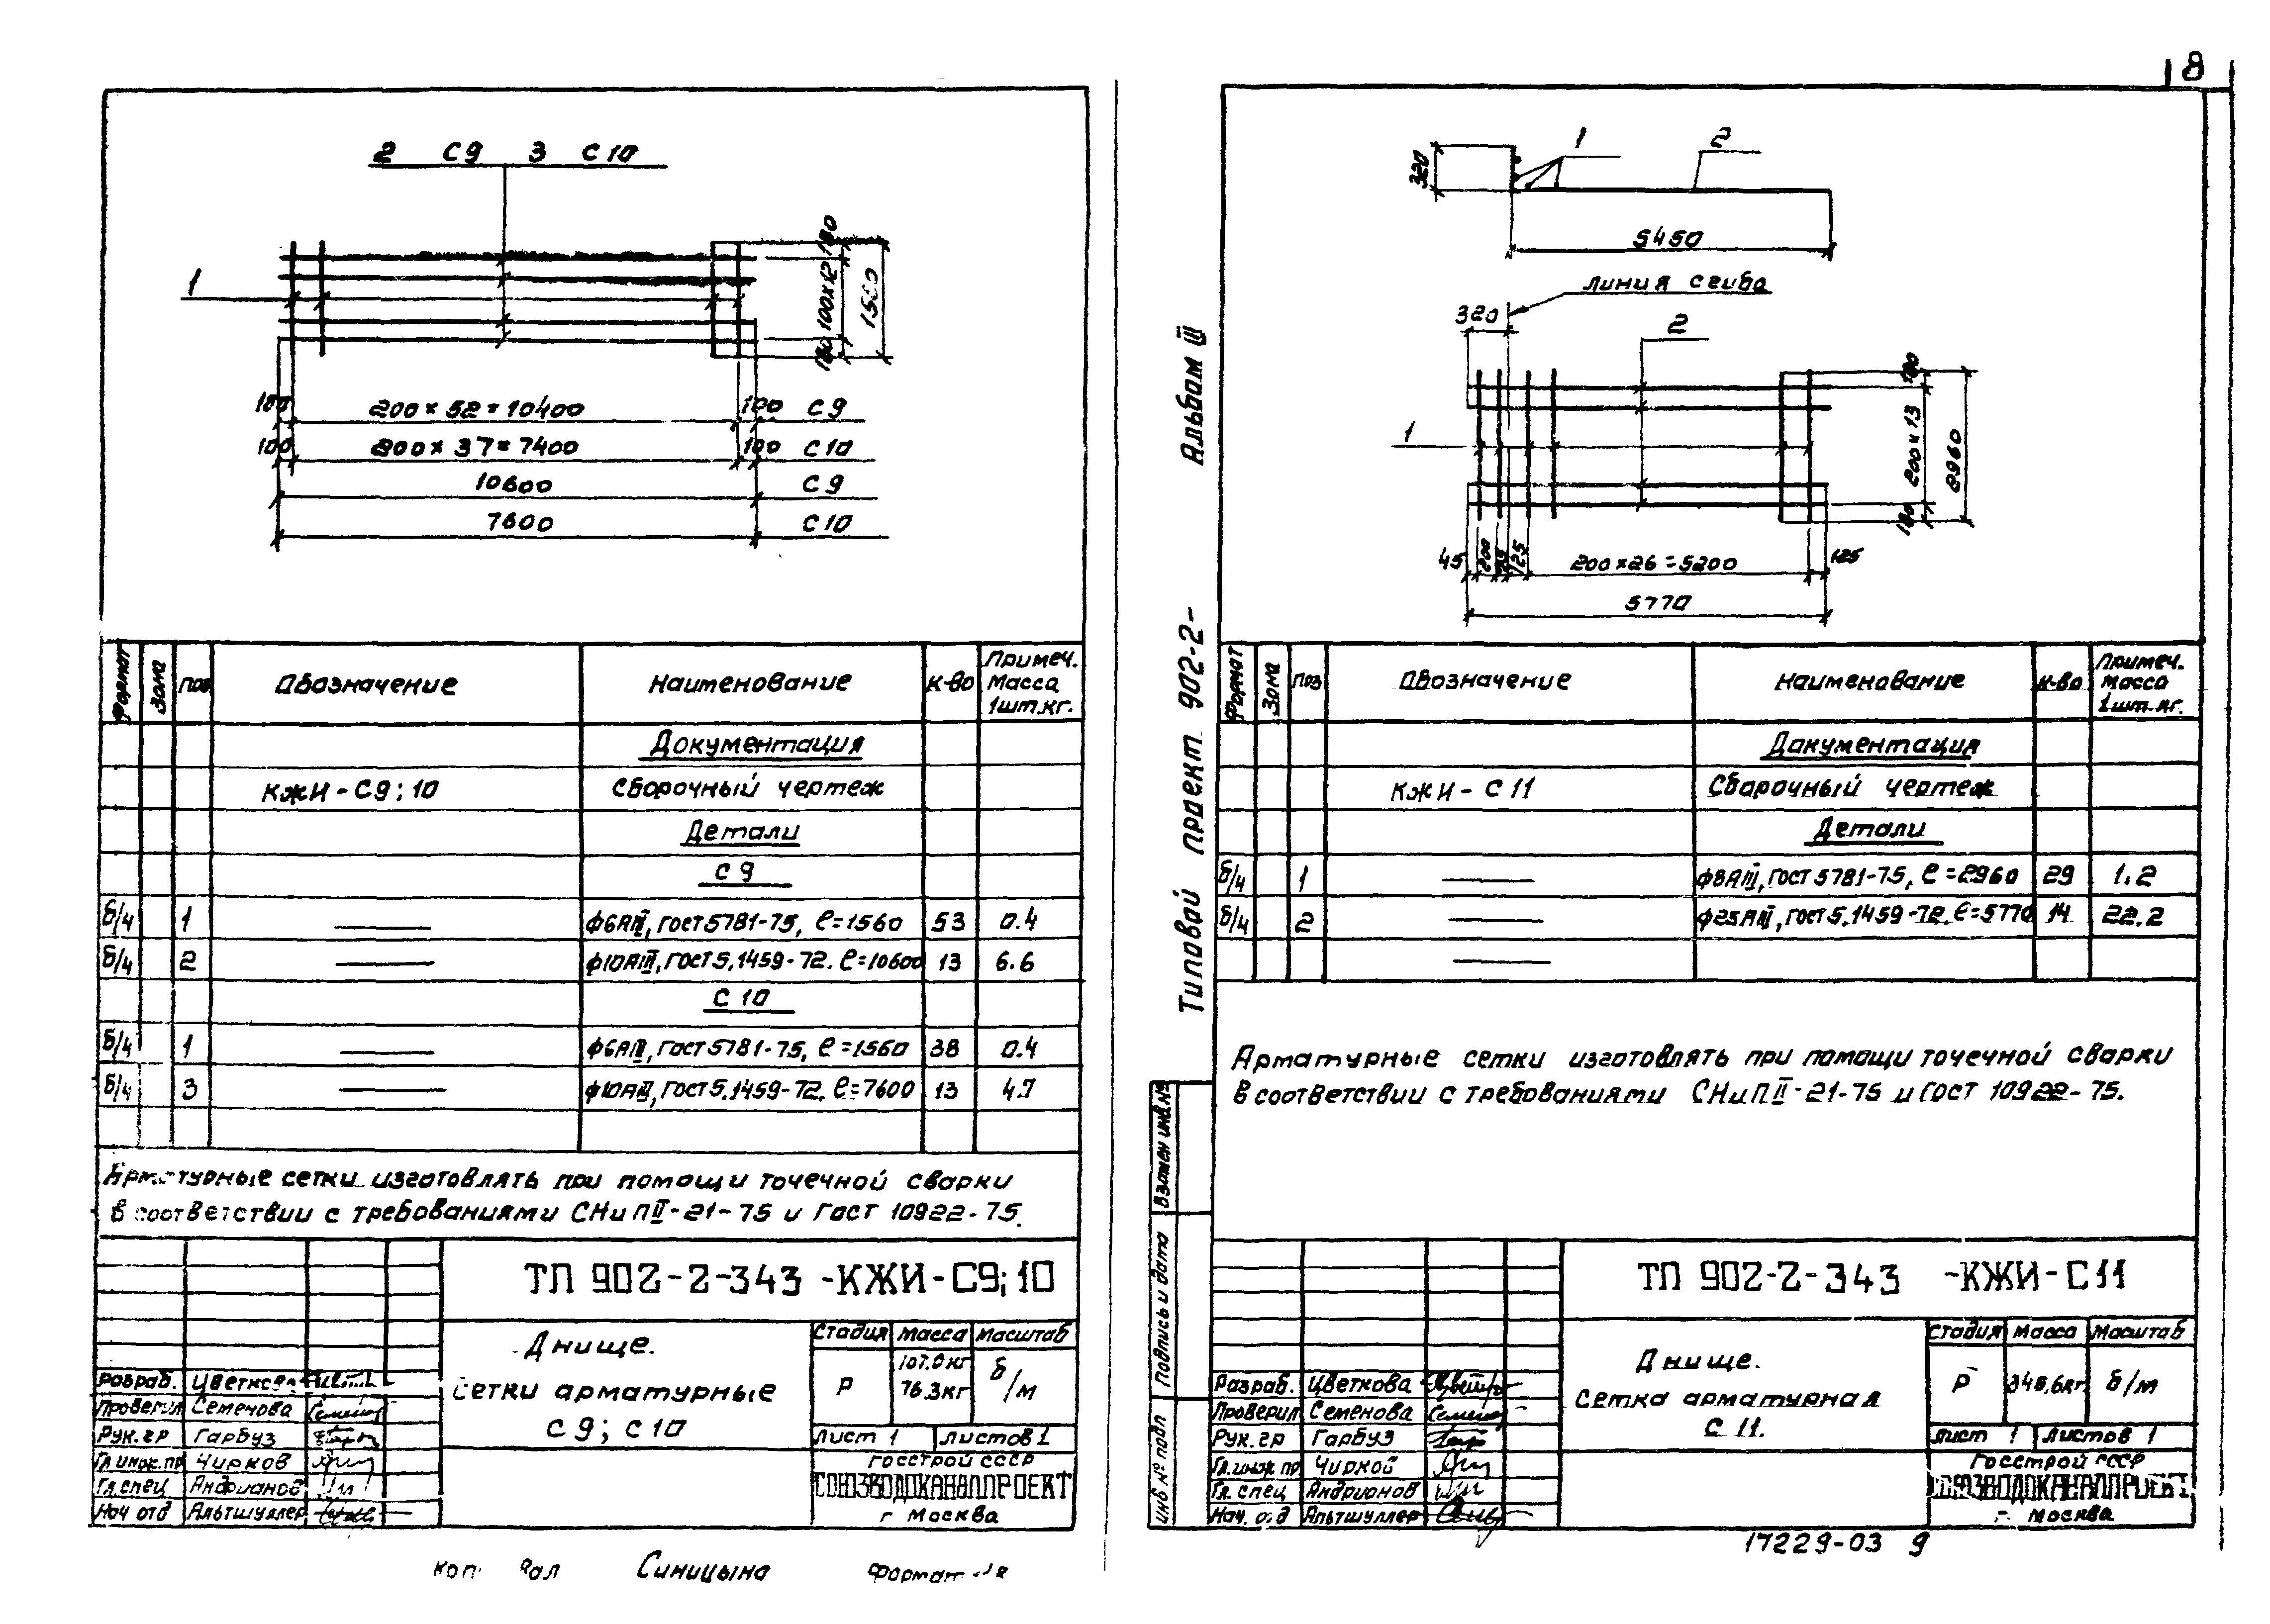 18
2 С9 3 С10
1
180
100х12
1560
180
100 200 х 52 = 10400 100 С9
100 200 х 37 = 7400 100 С10
10600 С9
7600 С10
Формат Зона Поз Обозначение Наименование К-во Примеч. Масса 1шт.кг.
Документация
КЖИ-С9;10 Сборочный чертеж
Детали
С9
б/ч 1 ф6АIII, ГОСТ 5781-75, ℓ=1560 53 0.4
б/ч 2 ф10АIII, ГОСТ 5.1459-72. ℓ=10600 13 6.6
С10
б/ч 1 ф6АIII, ГОСТ 5781-75, ℓ=1560 38 0.4
б/ч 3 ф10АIII, ГОСТ 5.1459-72. ℓ=7600 13 4.7
Арматурные сетки изготовлять при помощи точечной сварки
в соответствии с требованиями СНиПII-21-75 и ГОСТ 10922-75.
ТП 902-2-343 -КЖИ-С9;10
Днище.
Сетки арматурные
С9; С10
Стадия Масса Масштаб
Р 107.0кг 76.3кг б/м
Лист 1 Листов 1
Госстрой СССР
СОЮЗВОДОКАНАЛПРОЕКТ
г Москва
Разраб. Цветкова
Проверил Семенова
Рук.гр Гарбуз
Гл.инж.пр Чирков
Гл.спец Андрианов
Нач отд Альтшуллер
Синицына
Формат
1 2
320
5450
линия сгиба
320
2
1
180
200х13
2960
180
45 200 75 125 200х26=5200 125
5770
Альбом III
Типовой проект 902-2-
Формат Зона Поз Обозначение Наименование К-во Примеч. Масса 1шт.кг.
Документация
КЖИ-С11 Сборочный чертеж
Детали
б/ч 1 ф8АIII, ГОСТ 5781-75, ℓ=2960 29 1.2
б/ч 2 ф25АIII, ГОСТ 5.1459-72. ℓ=5770 14 22.2
Арматурные сетки изготовлять при помощи точечной сварки
в соответствии с требованиями СНиПII-21-75 и ГОСТ 10922-75.
Взамен инв.№
Подпись и дата
Инв № подл
ТП 902-2-343 -КЖИ-С11
Днище.
Сетка арматурная
С 11.
Стадия Масса Масштаб
Р 345,6кг б/м
Лист 1 Листов 1
Госстрой СССР
СОЮЗВОДОКАНАЛПРОЕКТ
г. Москва
Разраб. Цветкова
Проверил Семенова
Рук.гр Гарбуз
Гл.инж.пр Чирков
Гл. спец Андрианов
Нач. отд Альтшуллер
17229-03 9